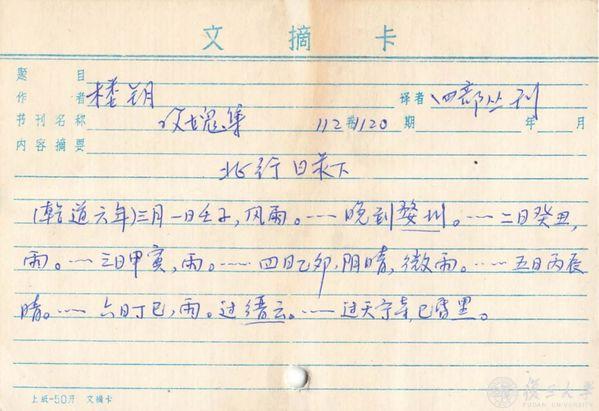 文摘卡
题目
作者 楼朔 译者 四部丛刊
书刊名称 攻媿集 112卷 1120 期 年 月
内容摘要
北行日录下
(乾道六年)三月一日壬子,风雨。……晚到婺州。……二日癸丑,
雨。……三日甲寅,雨。……四日乙卯,阴晴,微雨。……五日丙辰
晴。……六日丁巳,雨。过缙云。……过天宁寺,已昏黑。
上纸-50月 文摘卡
復旦大學
FUDAN UNIVERSITY